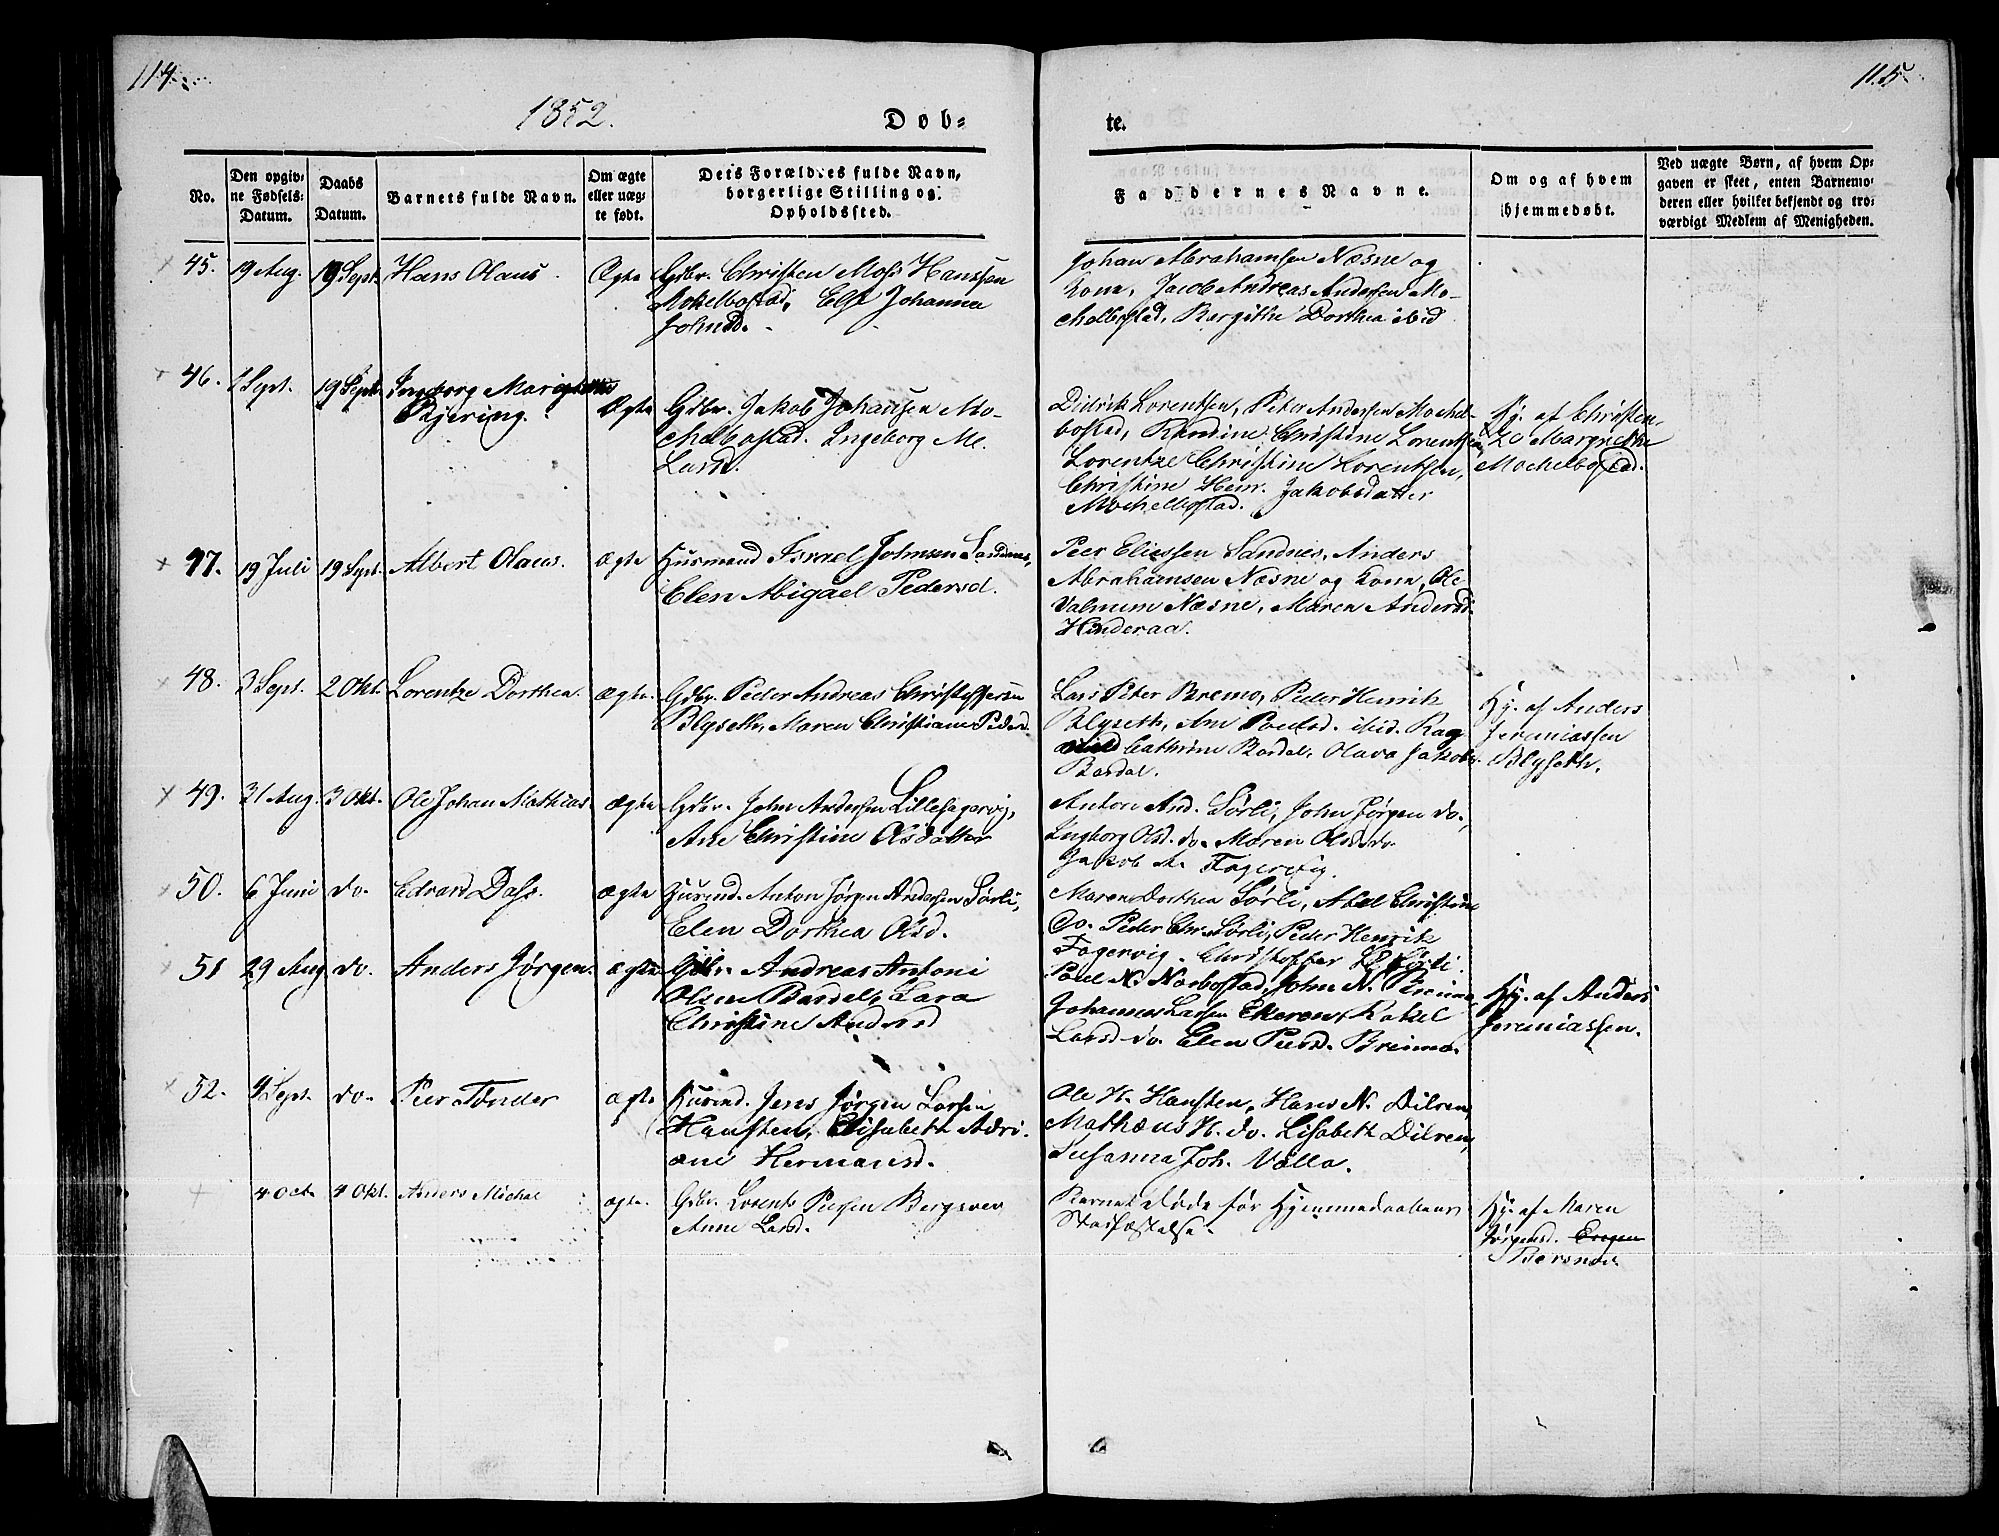 114.
115.
1852.
Døb=
te.
No.
Den opgiv=
ne Fødsels=
Datum.
Daabs
Datum.
Barnets fulde Navn.
Om ægte
eller uæg=
te født.
Dets Forældres fulde Navn,
borgerlige Stilling og
Opholdssted.
Faddernes Navne.
Om og af hvem
hjemmedøbt.
Ved uægte Børn, af hvem Op=
gaven er skeet, enten Barnemo=
deren eller hvilket bekjendt og tro=
værdigt Medlem af Menigheden.
45.
19 Aug.
19 Sept.
Hans Olaus.
Ægte
Gdbr. Christen Moss Hanssen
Mokelbostad, Else Johanna
Johnsd.
Johan Abrahamsen Næsne og
Kona, Jacob Andreas Andersen Mo-
chelbostad, Bargithe Dorthea ibid
46.
Sept.
19 Sept.
Ingeborg
Bjering.
Ægte
Gdbr. Jakob Johansen Mo-
chelbostad. Ingeborg M.
Larsd.
Didrik Lorentsen, Peter Andersen Mochel-
bostad, Randine Christine Lorentsen,
Lorentze Christine Lorentsen,
Christine Henr. Jakobsdatter
Mochelbostad.
Hj. af Christen-
ze Margrethe
Mochelbostad.
47.
19 Juli
19 Sept.
Albert Olaus.
ægte
Husmand Israel Johnsen Sandnes,
Elen Abigael Pedersd.
Peer Eliessen Sandnes, Anders
Abrahamsen Næsne og Kona, Ole
Valnum Næsne, Maren Andersd.
Hinderaa.
48.
3 Sept.
2 Okt.
Lorentze Dorthea.
ægte.
Gdbr. Peder Andreas Christoffersen
Blyseth, Maren Christiane Pedersd.
Lars Peter Bremo, Peder Henrik
Blyseth, Ane Paulsd. ibid. Rag
Cathrine Bardal, Olava Jakobs.
Bardal.
Hj. af Anders
Jeremiassen
Blyseth.
49.
31 Aug.
3 Okt.
Ole Johan Mathias.
ægte
Gdbr. John Andersen Lillefagervig,
Ane Christine Olsdatter
Anton And. Sørli, John Jørgen do.,
Ingborg Olsd. do. Maren Olsd. do.
Jakob A. Fagervig.
50.
6 Juni
do.
Edvard Dass.
ægte
Husmd. Anton Jørgen Andersen Sørli,
Elen Dorthea Olsd.
Maren Dorthea Sørli, Abel Christine
do. Peder Chr. Sørli, Peder Henrik
Fagervig. Christoffer Sørli.
51
29 Aug
do.
Anders Jørgen.
ægte
Gdbr. Andreas Antoni
Olsen Bardal, Lara
Christine Andersd
Paul N. Norbostad, John N. Breimo
Johannes Larsen Ekeren, Rakel
Larsd do. Elen Peersd. Breimo.
Hj. af Anders
Jeremiassen.
52.
Sept.
do.
Peer Tønder
ægte
Husmd. Jens Jørgen Larsen
Haugsten, Elisabeth Adri-
ane Hermansd.
Ole H. Haugsten, Hans N. Dilren,
Mathæus H. do. Lisabeth Dilren,
Susanna Joh. Valla.
4 Oct.
4 Okt.
Anders Michal
ægte.
Gdbr. Lorents Peersen Bergsnev
Anne Larsd.
Barnet døde før Hjemmedaabens
Stadfæstelse.
Hj. af Maren
Jørgensd.
Bersnev